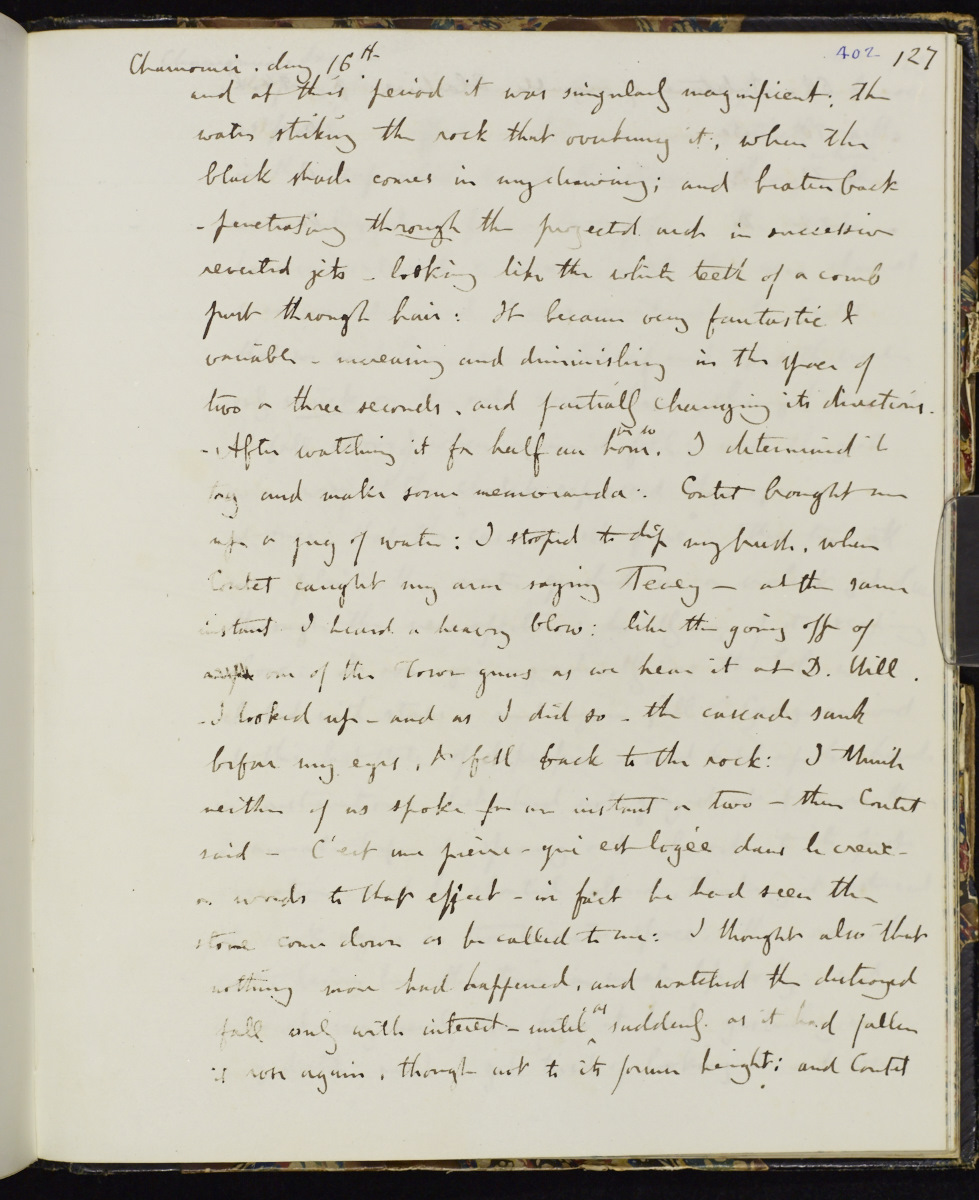 Chamouni. Aug 16th 402 127
and at this period it was singularly magnificent; the
water striking the rock that overhung it, where the
black shade comes in my drawing; and beaten back
- penetrating through the projected arch in successive
reverted jets - looking like the white teeth of a comb
put through hair: It became very fantastic &
variable - increasing and diminishing in the space of
two or three seconds, and partially changing its directions.
- After watching it for half an hour, or so I determined to
try and make some memoranda:. Coutet brought me
up a jug of water: I stooped to dip my brush, when
Coutet caught my arm saying Tenez - at the same
instant I heard a heavy blow: like the going off of
one of the Tower guns as we hear it at D. Hill.
- I looked up - and as I did so - the cascade sank
before my eyes, & fell back to the rock: I think
neither of us spoke for an instant or two - then Coutet
said - C'est une pierre - qui est logée dans le creux -
or words to that effect - in fact he had seen the
stone come down as he called to me: I thought also that
nothing more had happened, and watched the destroyed
fall only with interest - until as suddenly as it had fallen
it rose again, though not to its former height; and Coutet